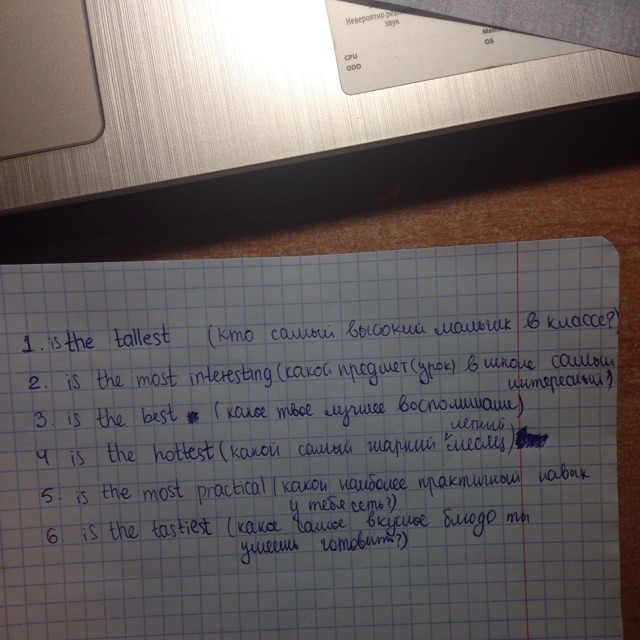 Невероятно
звук
CPU
ODD
OS
1. is the tallest (кто самый высокий мальчик в классе?)
2. is the most interesting (какой предмет (урок) в школе самый
интересный?)
3. is the best (какое твое лучшее воспоминание)
летний
4 is the hottest (какой самый жаркий месяц)
5. is the most practical (какой наиболее практичный навык
у тебя есть?)
6 is the tastiest (какое самое вкусное блюдо ты
умеешь готовить?)